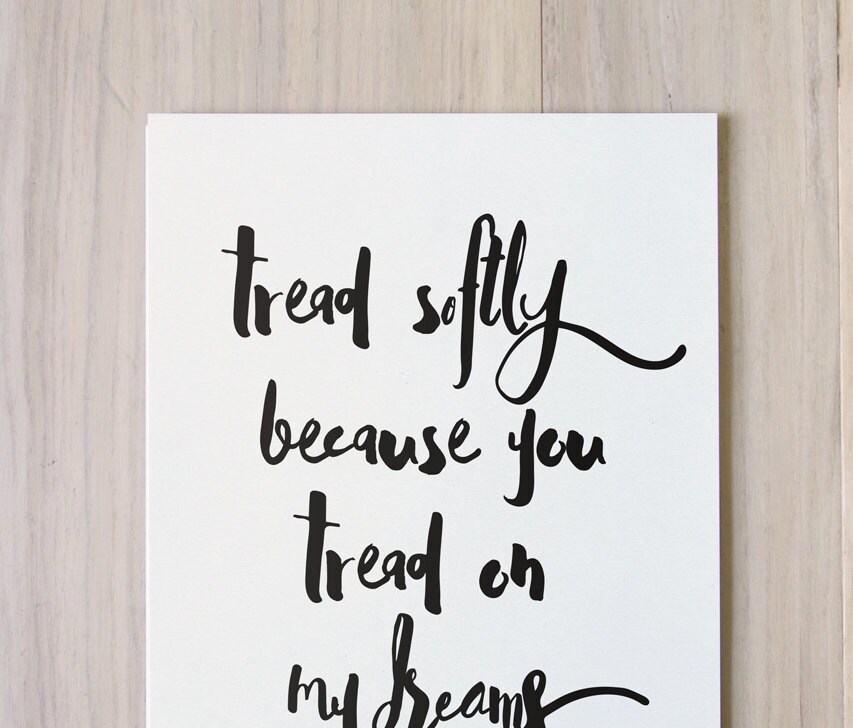 tread softly
because you
tread on
my dreams